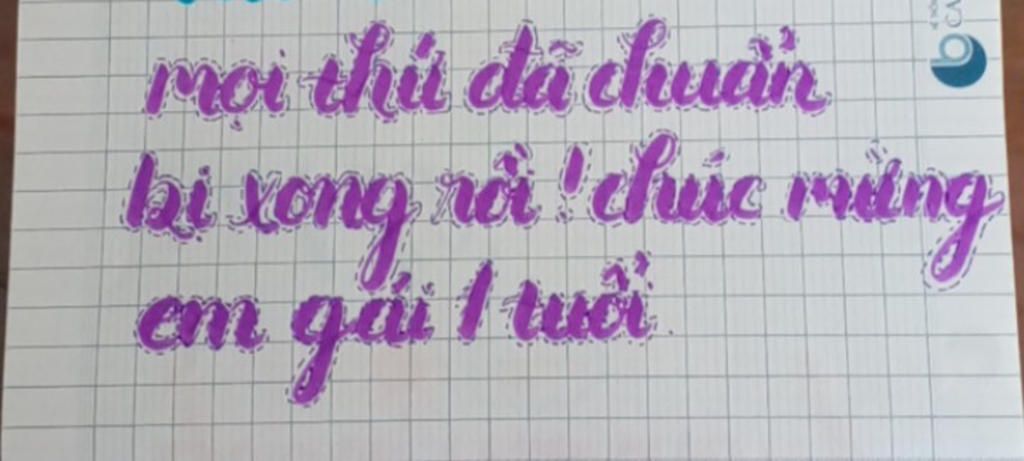 mọi thứ đã chuẩn
bị xong rồi ! chúc mừng
em gái 1 tuổi